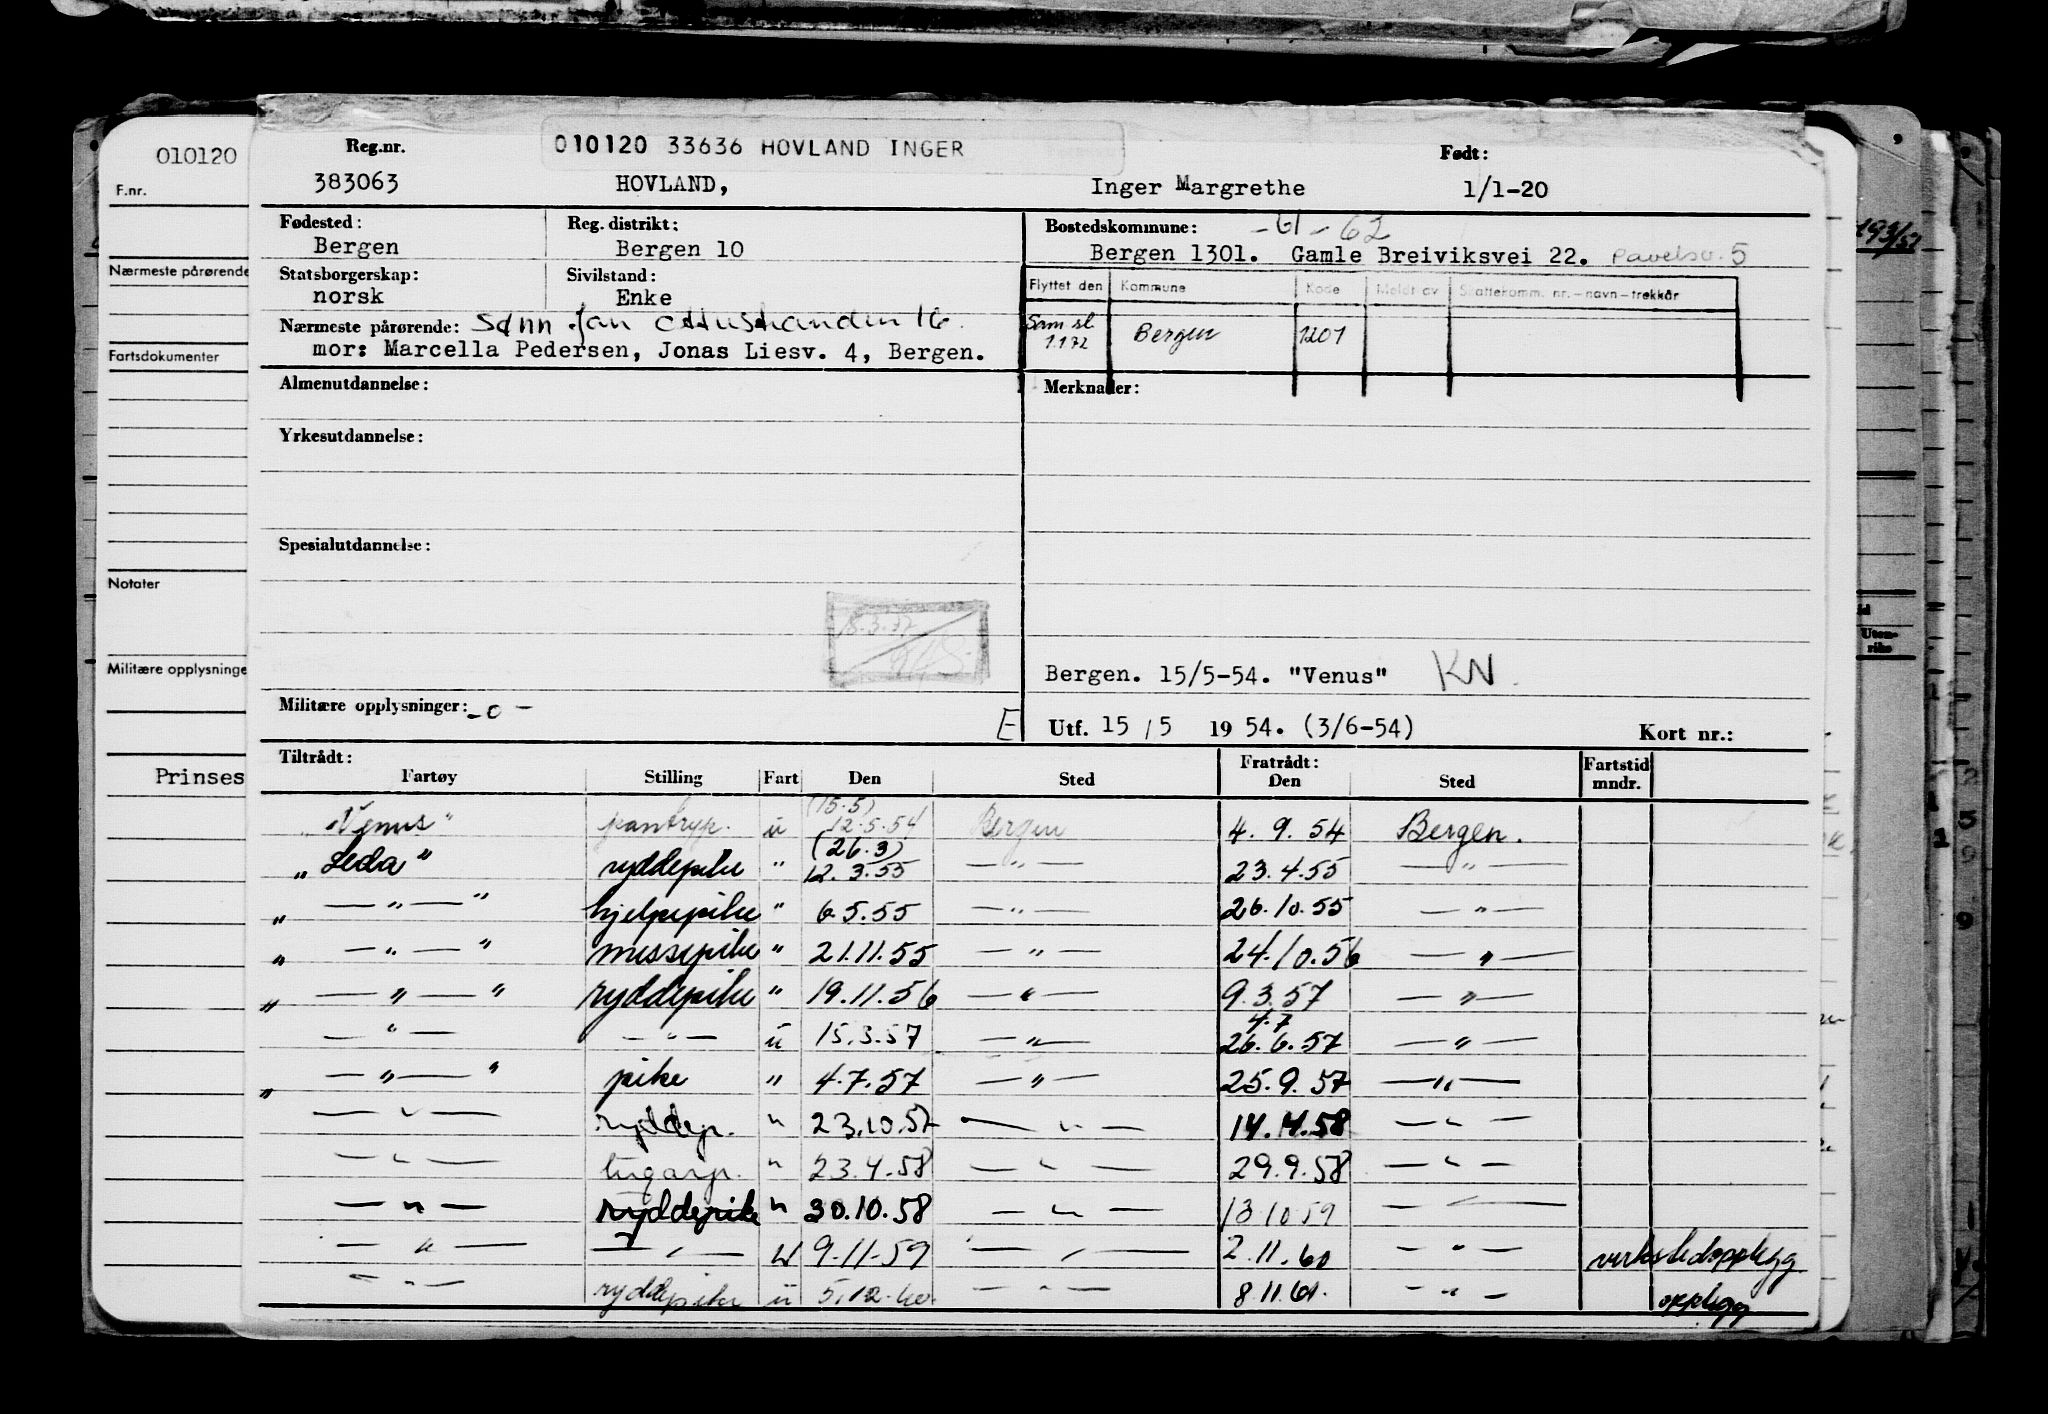 010120
F.nr.
Nærmeste pårørende
Fartsdokumenter
Notater
Militære opplysninge
Prinses
010120 33636 HOVLAND INGER
Reg.nr. Født:
383063 HOVLAND, Inger Margrethe 1/1-20
Fødested: Reg. distrikt: Bostedskommune: -61-62
Bergen Bergen 10 Bergen 1301. Gamle Breiviksvei 22. 5
Statsborgerskap: Sivilstand:
norsk Enke
Flyttet den Kommune Kode Meldt av Skattekomm. nr.-navn-trekkår
Sam sl 1.1 72 Bergen 1201
Nærmeste pårørende: Sønn Jan 16.
mor: Marcella Pedersen, Jonas Liesv. 4, Bergen.
Almenutdannelse: Merknader:
Yrkesutdannelse:
Spesialutdannelse:
15.3.57
Bergen. 15/5-54. "Venus" KN.
Militære opplysninger: -o-
E Utf. 15/5 1954. (3/6-54) Kort nr.:
Tiltrådt: Fratrådt: Fartstid
Fartøy Stilling Fart Den Sted Den Sted mndr.
"Venus" pantryp. u (15.5) 12.5.54 Bergen 4.9.54 Bergen.
"Leda" ryddepike " (26.3) 12.3.55 —"— 23.4.55 —"—
„ —"— " hjelpepike " 6.5.55 —"— 26.10.55 —"—
„ —"— " messepike " 21.11.55 —"— 24.10.56 —"—
„ —"— " ryddepike " 19.11.56 —"— 9.3.57 —"—
—"— —"— u 15.3.57 —"— 4.7 26.6.57 —"—
„ —"— " pike " 4.7.57 —"— 25.9.57 —"—
—"— ryddep. " 23.10.57 —"— 14.4.58 —"—
—"— lugarp. " 23.4.58 —"— 29.9.58 —"—
—"— ryddepike " 30.10.58 —"— 13.10.59 —"—
—"— —"— u 9.11.59 —"— 2.11.60 —"— verkstedopplegg
—"— ryddepike u 5.12.60. —"— 8.11.61. —"— opplegg
193/57
Uten-
riks